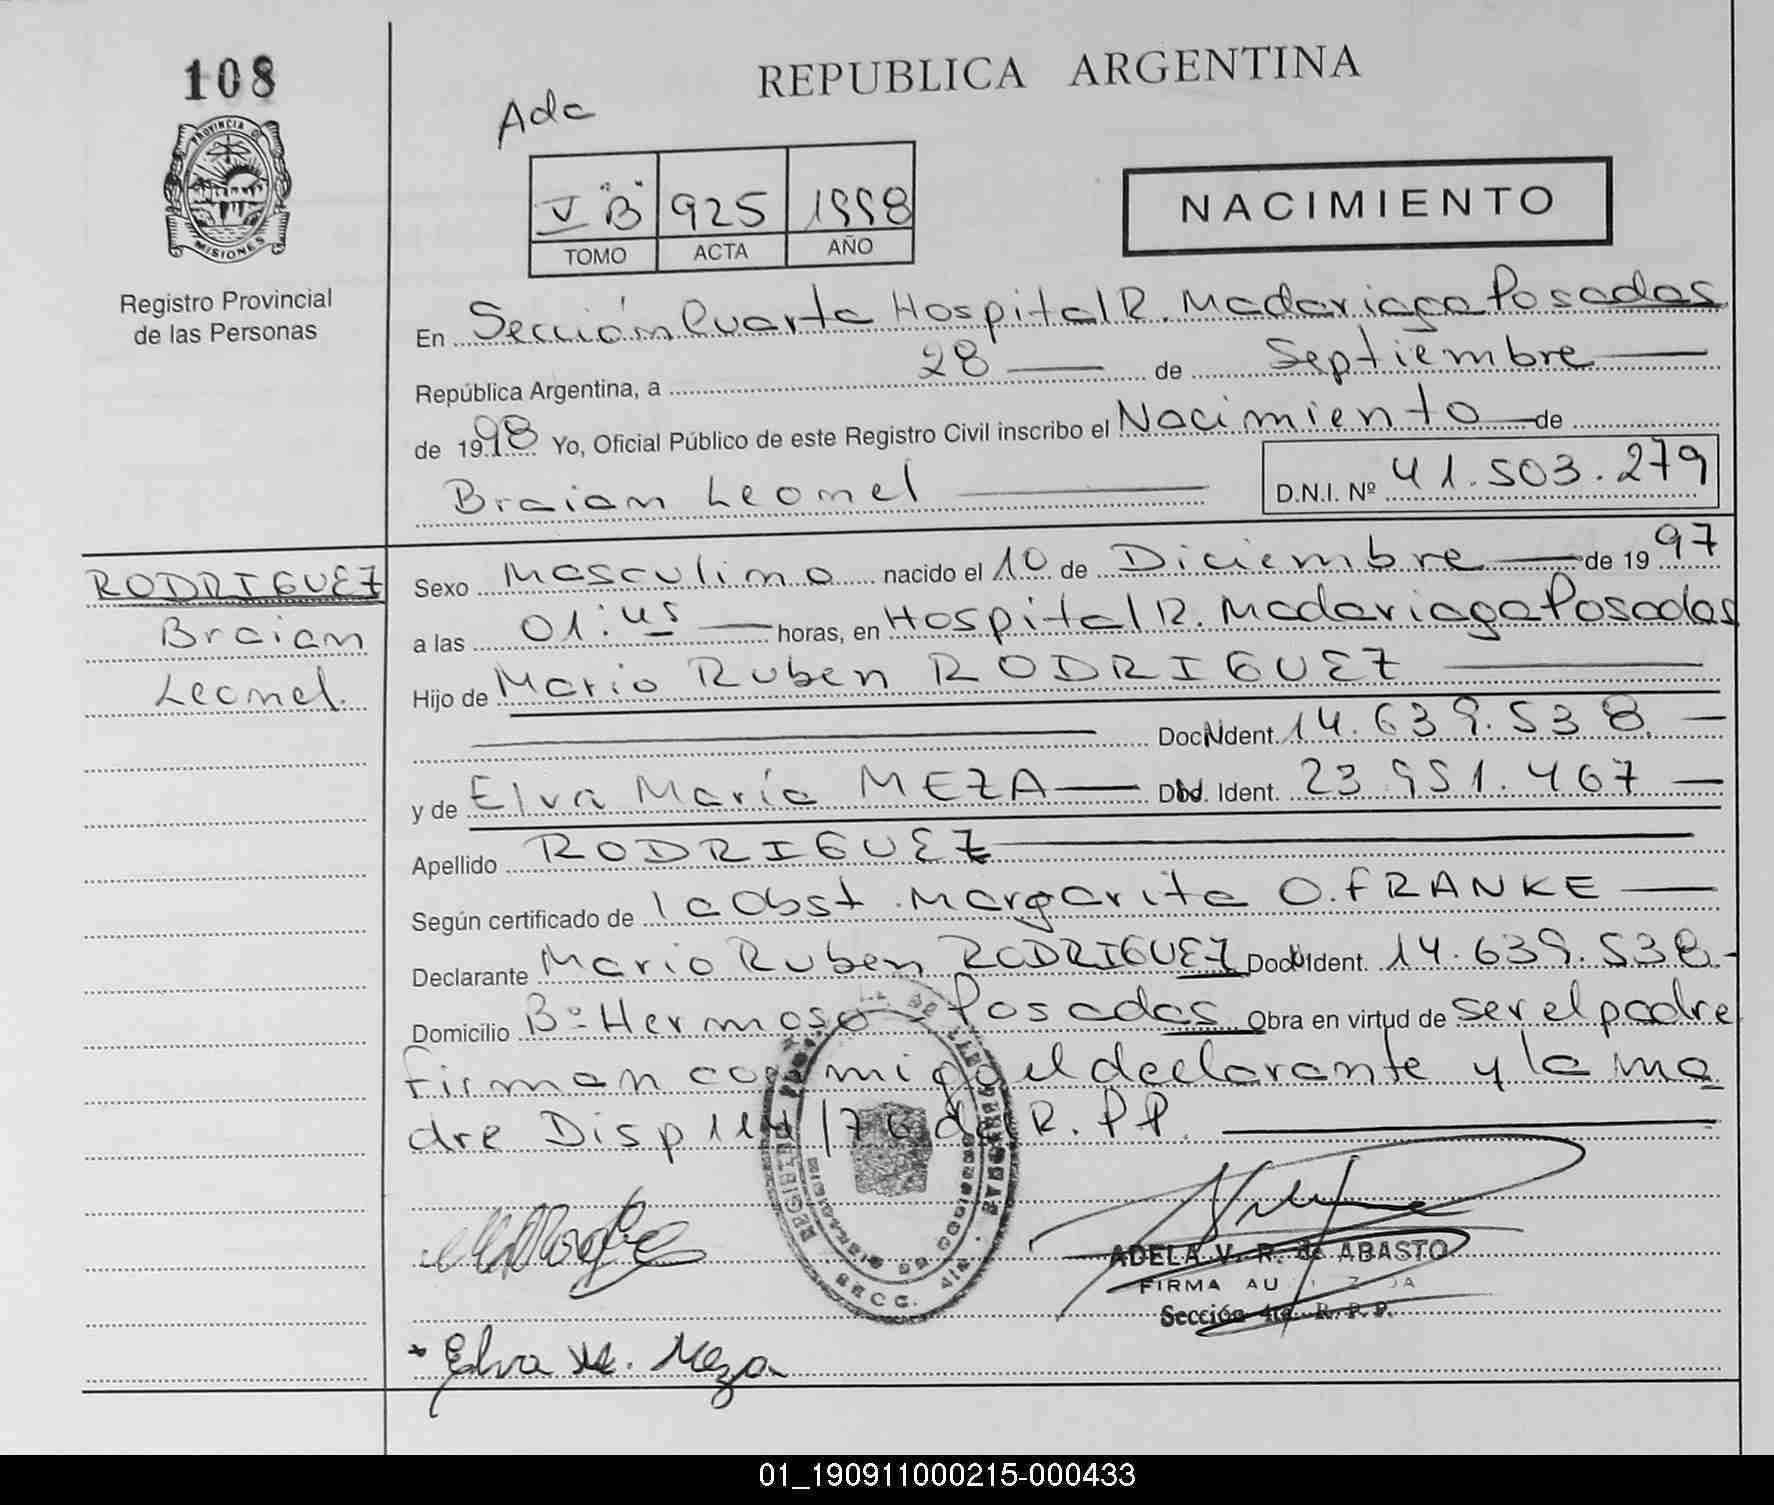 108
REPUBLICA ARGENTINA
PROVINCIA DE
MISIONES
Registro Provincial
de las Personas
V "B" 925 1998
TOMO ACTA AÑO
NACIMIENTO
En Sección Cuarta Hospital R. Madariaga Posadas
República Argentina, a 28 de Septiembre
de 1998 Yo, Oficial Público de este Registro Civil inscribo el Nacimiento de
Braian Leonel D.N.I. Nº 41.503.279
RODRIGUEZ
Braian
Leonel.
Sexo Masculino nacido el 10 de Diciembre de 1997
a las 01:45 horas, en Hospital R. Madariaga Posadas
Hijo de Mario Ruben RODRIGUEZ
Doc. Ident. 14.639.538.
y de Elva María MEZA Doc. Ident. 23.951.467
Apellido RODRIGUEZ
Según certificado de la Obst. Margarita O. FRANKE
Declarante Mario Ruben RODRIGUEZ Doc. Ident. 14.639.538.-
Domicilio Bº Hermoso - Posadas Obra en virtud de ser el padre
firman conmigo el declarante y la ma
dre Disp 114/76 del R.P.P.
ADELA V. R. de ABASTO
FIRMA AUTORIZADA
Sección 4ta. R. P. P.
Elva M. Meza
01_190911000215-000433